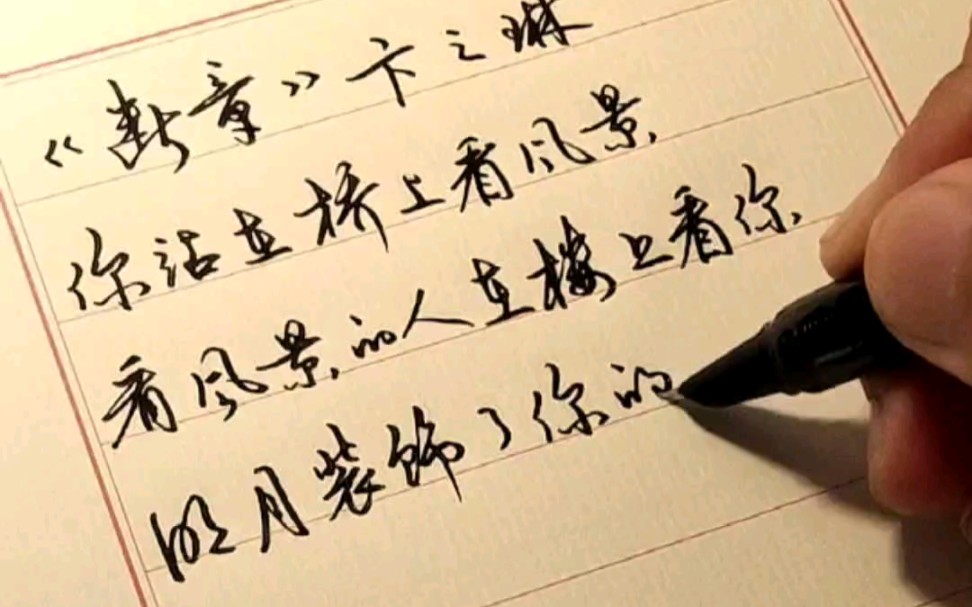 《断章》卞之琳
你站在桥上看风景,
看风景的人在楼上看你,
明月装饰了你的